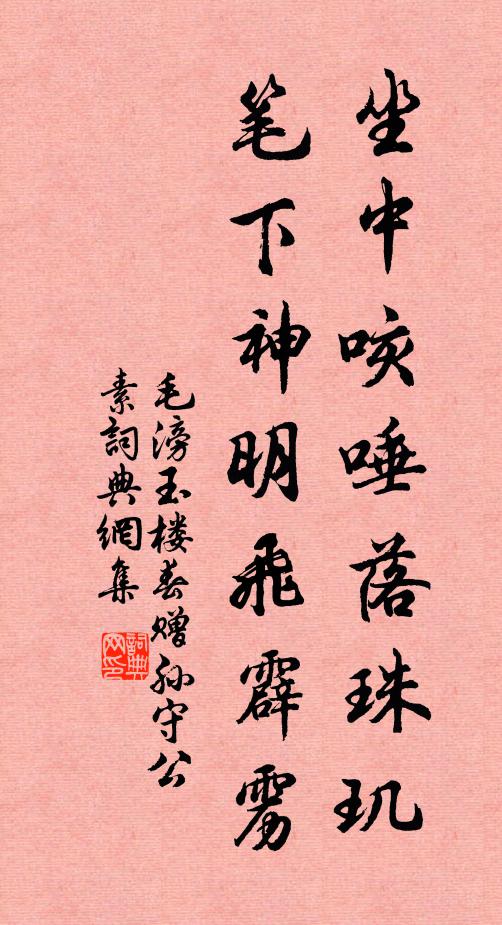 坐中咳唾落珠玑
笔下神明飞霹雳
毛滂玉楼春赠孙守公
素詞典網集
詞典网印